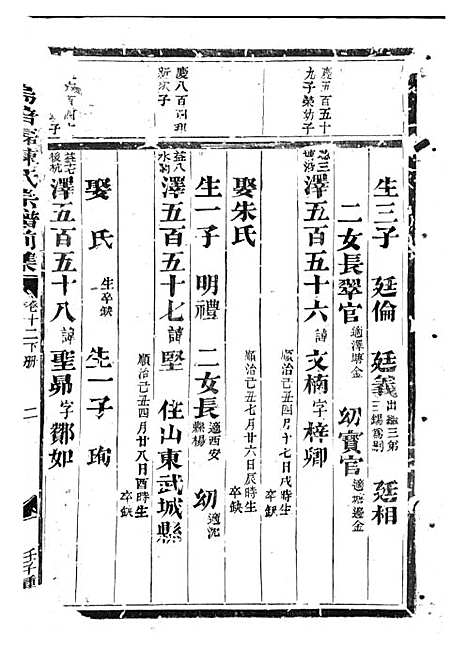 生三子 廷倫 廷義 出繼三弟三錫爲嗣 廷相
二女長翠官 適澤塘金 幼寶官 適邊金
慶五百五十
九子榮幼子
澤五百五十六 諱文楠 字梓卿
順治己丑四月十七日戌時生
卒缺
娶朱氏
順治己丑七月廿六日辰時生
卒缺
生一子 明禮 二女長 適西安縣楊 幼 適沈
慶八百
新次子
澤五百五十七 諱堅 住山東武城縣
順治己丑四月廿八日酉時生
卒缺
娶 氏 生卒缺 生一子 珣
澤五百五十八 諱聖昴 字鄒如
氏宗譜前集 卷十二下册 二